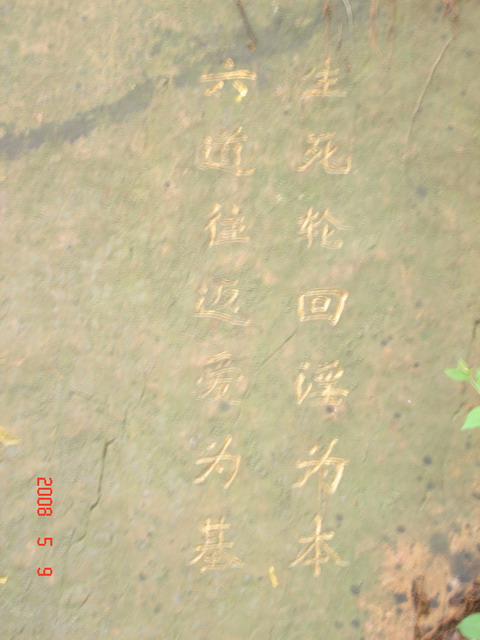 生死轮回淫为本
六道往迈爱为基
2008 5 9